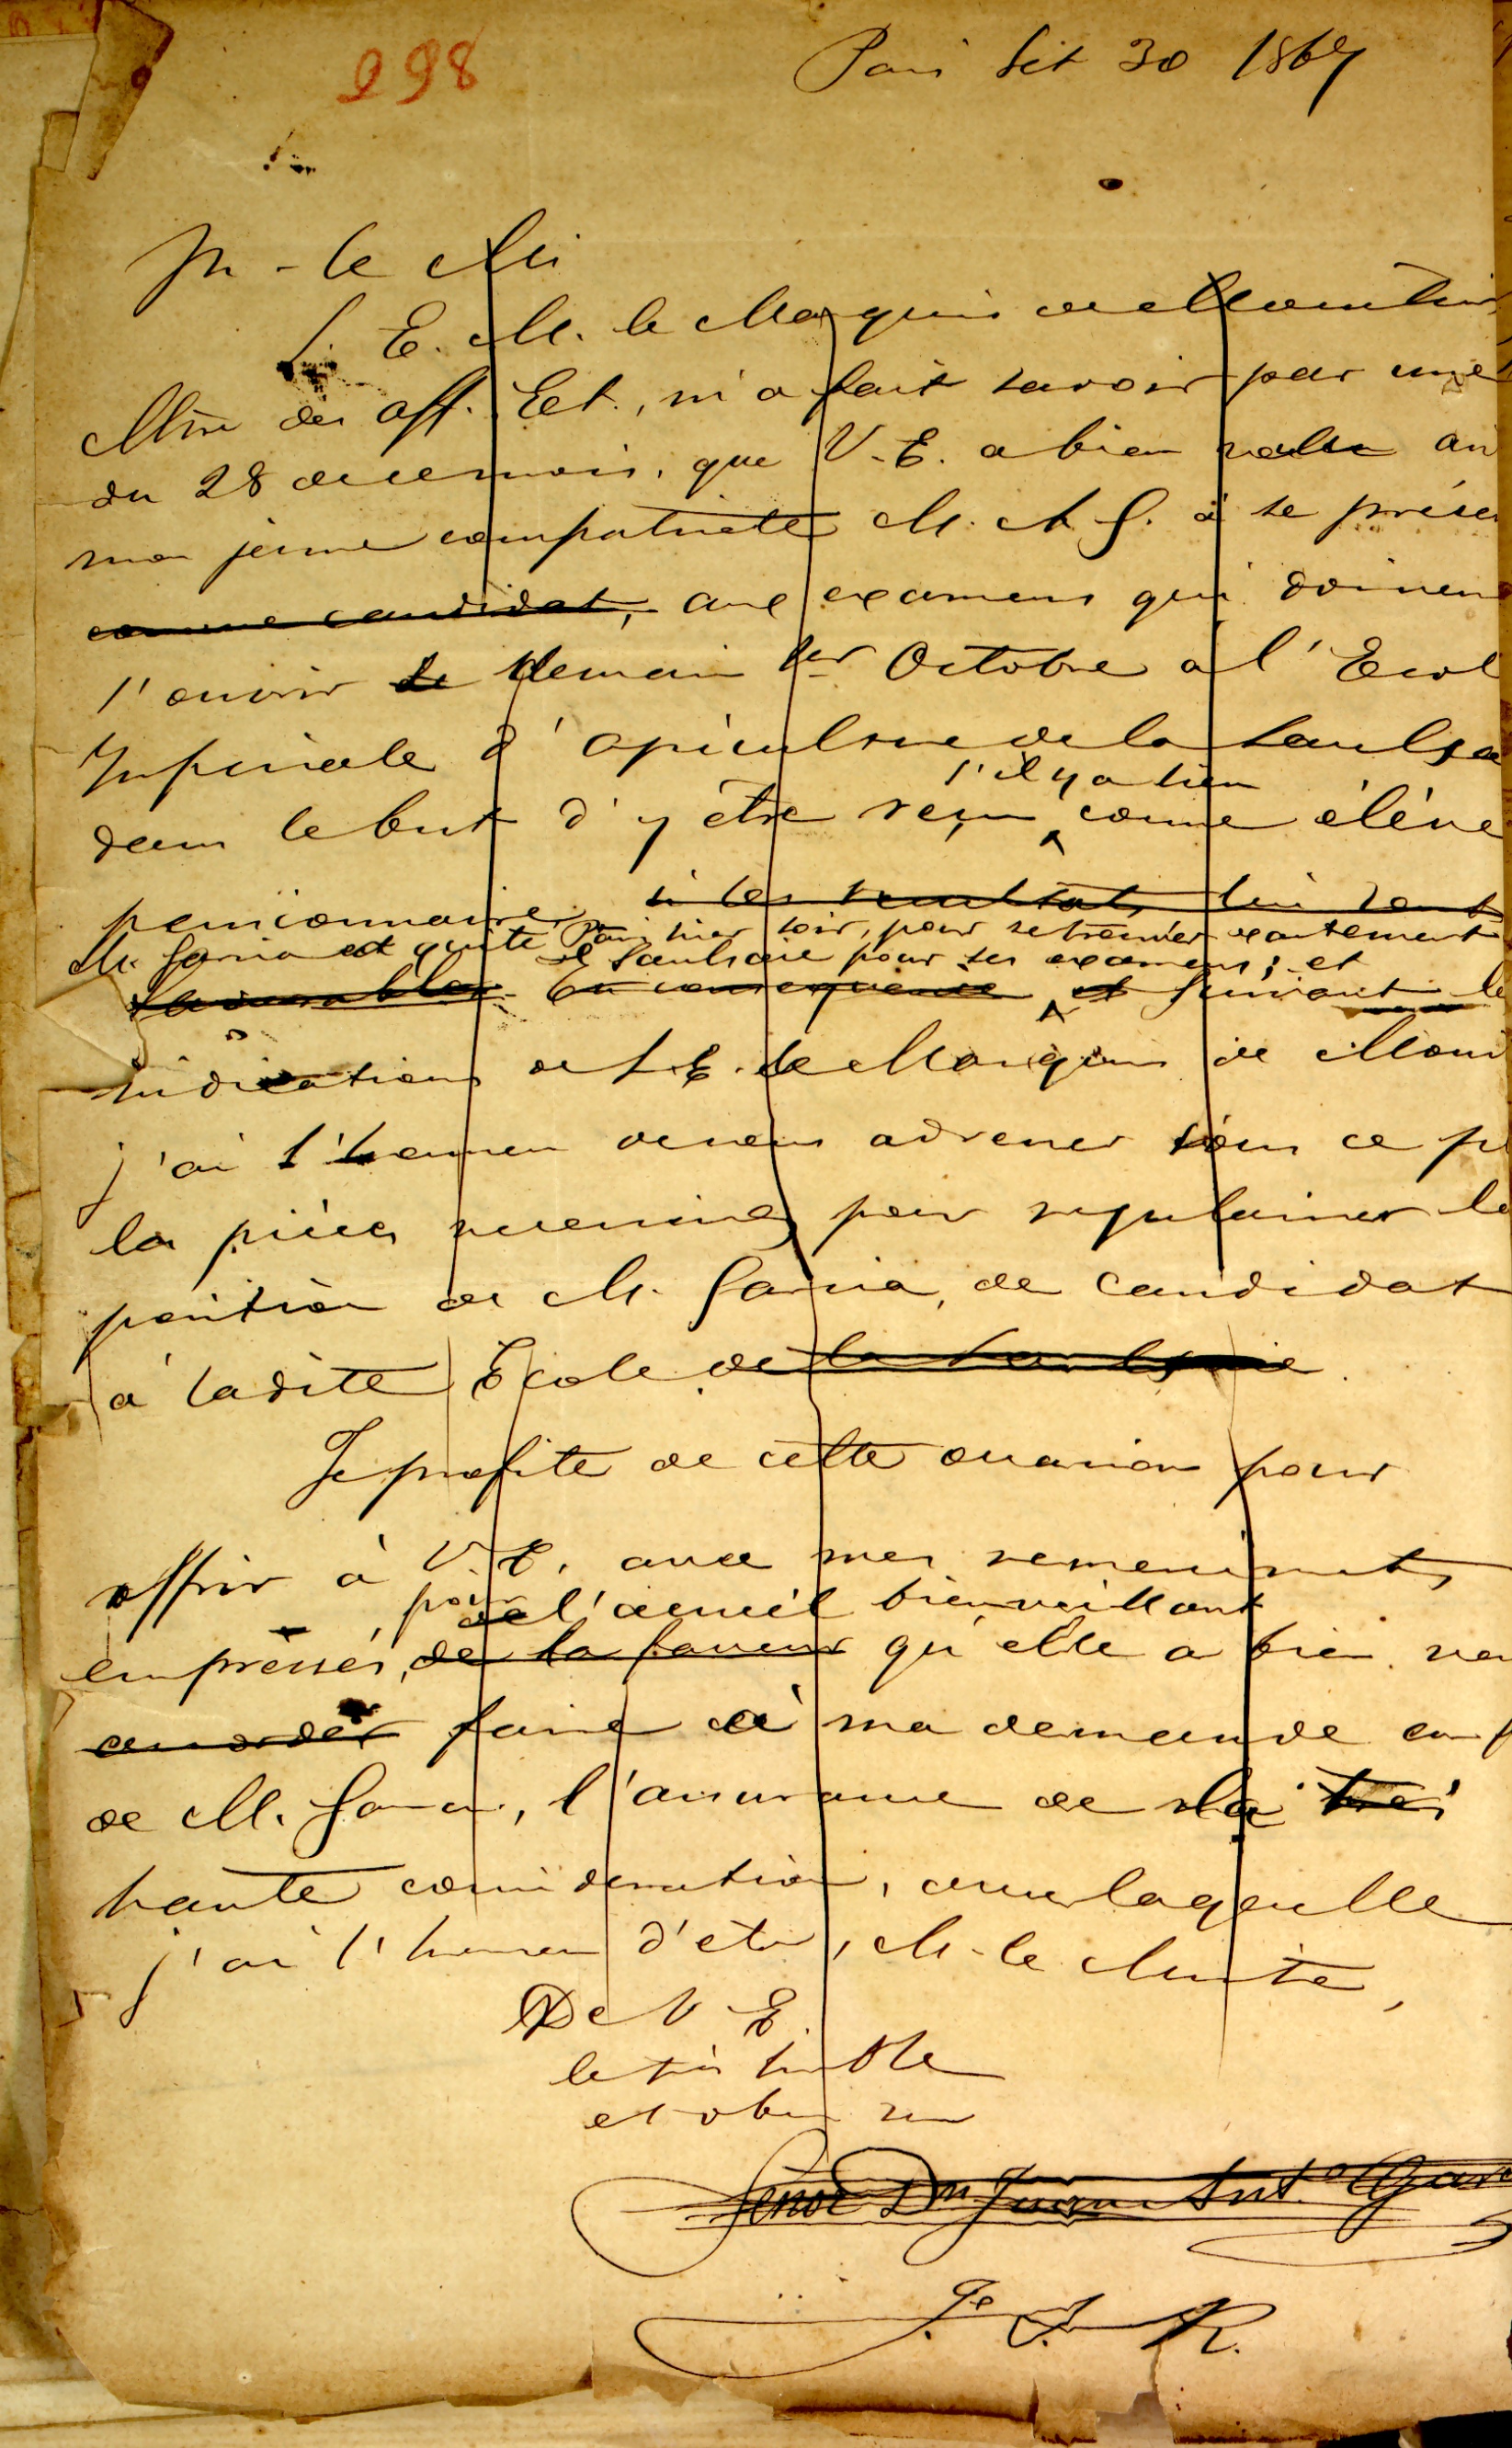 298
Paris Set 30 1867
M. le Mi
S. E. M. le Marquis de Moustier
Mire des Aff. Ext., m'a fait savoir par une
du 28 de ce mois, que V. E. a bien voulu au
mon jeune compatriote M. A. G. à se prése
comme candidat, aux examens qui doivent
s'ouvrir le demain 1er Octobre à l'Ecol
Impériale d'agriculture de la Saulsa
s'il y a lieu
dans le but d'y être reçu comme élève
pensionnaire, si les résultats lui sont
M. Garcia est quitté Paris hier soir, pour se trouver exactement
à Saulsaie pour ses examens; et
favorables. En conséquence et suivant le
indications de S. E. le Marquis de Mous
j'ai l'honneur de vous adresser sous ce p
les pièces necessaires pour regulariser la
position de M. Garcia, de candidat
à ladite Ecole de la Saulsaie.
Je profite de cette occasion pour
offrir à V. E. avec mes remerciments
pour de l'accueil bienveillant
empressés, de la faveur qu'elle a bien vou
accorder faire à ma demande en f
de M. Garcia, l'assurance de la très
haute consideration, avec laquelle
j'ai l'honneur d'être, M. le Ministre,
De V. E.
le très humble
et obeis ser
Señor Dn Juan Anto Garc
Je J. R.